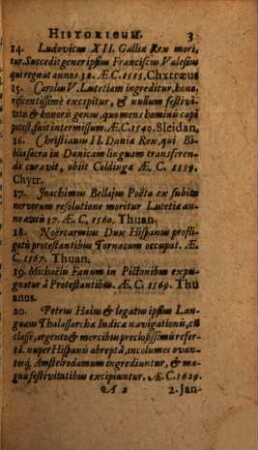 HISTORICUM. 3
14. Ludovicus XII. Galliæ Rex mori-
tur. Succedit gener ipsius Franciscus Valesius
qui regnat annos 32. Æ.C. 1515. Chytræus
15. Carolus V. Lutetiam ingreditur, hono-
rificentissimè excipitur, & nullum festivi-
tatis & honoris genus, quo mens homini capi
potest, fuit intermissum. Æ.C. 1540. Sleidan.
16. Christianus II. Daniæ Rex, qui Bi-
blia sacra in Danicam linguam transferen-
di curavit, obiit Coldingæ Æ.C. 1559.
Chytr.
17. Joachimus Bellajus Poëta ex subita
nervorum resolutione moritur Lutetiæ
Æ.C. 1560. Thuan.
18. Noërcarmius Dux Hispanus profli-
gatis protestantibus Tornacum occupat. Æ.
C. 1567. Thuan.
19. Michaëlis Fanum in Pictonibus expu-
gnatur à Protestantibus. Æ.C. 1569. Thu
anus.
20. Petrus Hain & legatus ipsius Lon-
Thalassarchæ Indicæ navigationis, cũ
classe, argento & mercibus preciosissimis refer-
tâ nuper Hispanis abreptâ, incolumes ovan-
tesq; Amstelrodamum ingrediuntur, & ma-
gnis festivitatibus excipiuntur. Æ.C. 1629.
A 2 2. Jan-